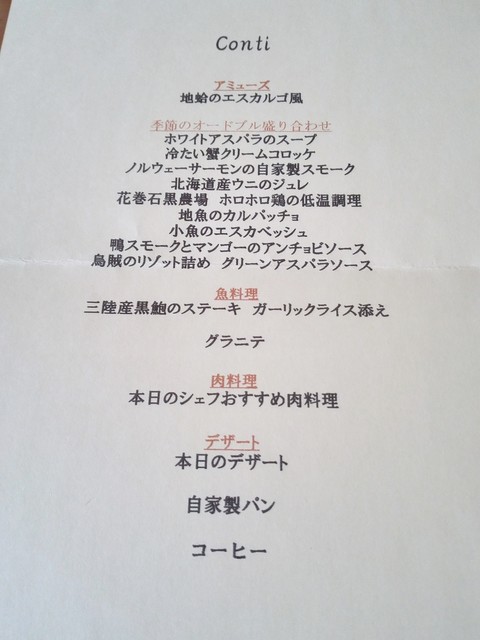 Conti
アミューズ
地蛤のエスカルゴ風
季節のオードブル盛り合わせ
ホワイトアスパラのスープ
冷たい蟹クリームコロッケ
ノルウェーサーモンの自家製スモーク
北海道産ウニのジュレ
花巻石黒農場 ホロホロ鶏の低温調理
地魚のカルパッチョ
小魚のエスカベッシュ
鴨スモークとマンゴーのアンチョビソース
烏賊のリゾット詰め グリーンアスパラソース
魚料理
三陸産黒鮑のステーキ ガーリックライス添え
グラニテ
肉料理
本日のシェフおすすめ肉料理
デザート
本日のデザート
自家製パン
コーヒー